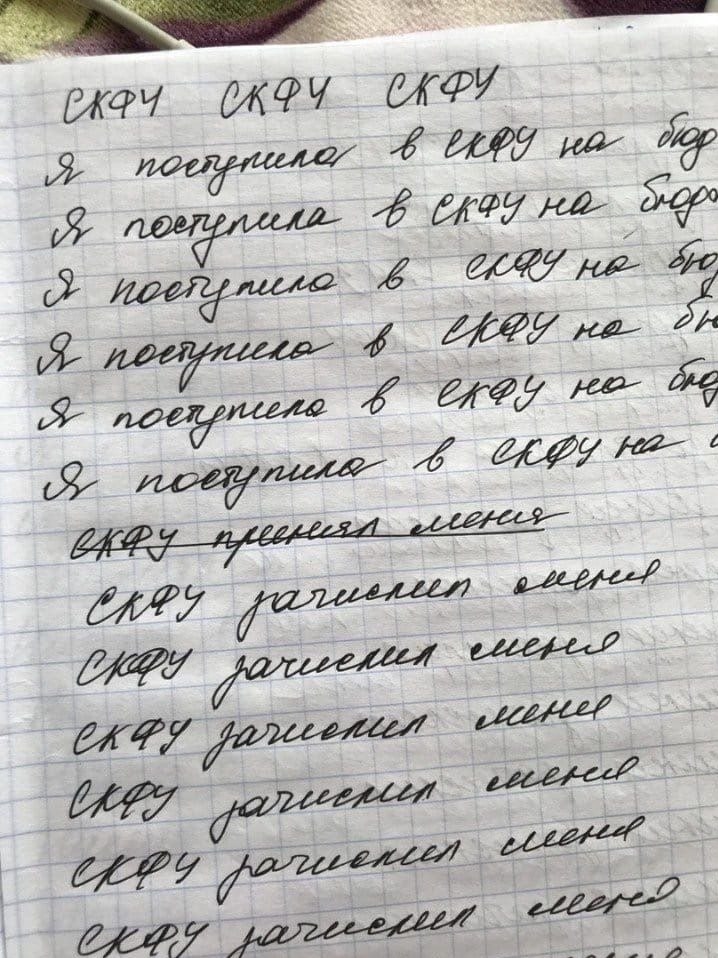 СКФУ СКФУ СКФУ
Я поступила в СКФУ на бюд
Я поступила в СКФУ на бюдж
Я поступила в СКФУ на бюд
Я поступила в СКФУ на бю
Я поступила в СКФУ на бюд
Я поступила в СКФУ на
СКФУ принял меня
СКФУ зачислил меня
СКФУ зачислил меня
СКФУ зачислил меня
СКФУ зачислил меня
СКФУ зачислил меня
СКФУ зачислил меня